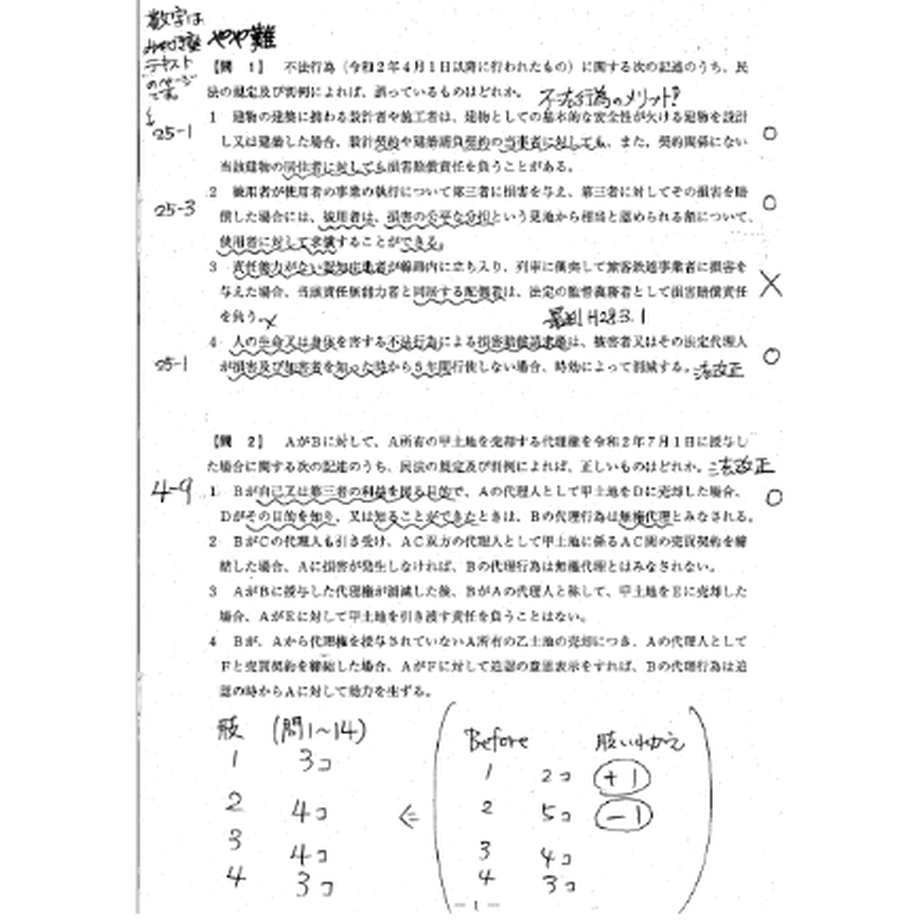 数字は
みやざき塾
テキスト
のページ
です
やや難
【問 1】 不法行為（令和2年4月1日以降に行われたもの）に関する次の記述のうち、民
法の規定及び判例によれば、誤っているものはどれか。 不法行為のメリット?
25-1
1 建物の建築に携わる設計者や施工者は、建物としての基本的な安全性が欠ける建物を設計
し又は建築した場合、設計契約や建築請負契約の当事者に対しても、また、契約関係にない
当該建物の居住者に対しても損害賠償責任を負うことがある。
○
25-3
2 被用者が使用者の事業の執行について第三者に損害を与え、第三者に対してその損害を賠
償した場合には、被用者は、損害の公平な分担という見地から相当と認められる額について、
使用者に対して求償することができる。
○
3 責任能力がない認知症患者が線路内に立ち入り、列車に衝突して旅客鉄道事業者に損害を
与えた場合、当該責任無能力者と同居する配偶者は、法定の監督義務者として損害賠償責任
を負う。 ×
×
最判 H28.3.1
25-1
4 人の生命又は身体を害する不法行為による損害賠償請求権は、被害者又はその法定代理人
が損害及び加害者を知った時から5年間行使しない場合、時効によって消滅する。 法改正
○
【問 2】 AがBに対して、A所有の甲土地を売却する代理権を令和2年7月1日に授与し
た場合に関する次の記述のうち、民法の規定及び判例によれば、正しいものはどれか。 法改正
4-9
1 Bが自己又は第三者の利益を図る目的で、Aの代理人として甲土地をDに売却した場合、
Dがその目的を知り、又は知ることができたときは、Bの代理行為は無権代理とみなされる。
○
2 BがCの代理人も引き受け、AC双方の代理人として甲土地に係るAC間の売買契約を締
結した場合、Aに損害が発生しなければ、Bの代理行為は無権代理とはみなされない。
3 AがBに授与した代理権が消滅した後、BがAの代理人と称して、甲土地をEに売却した
場合、AがEに対して甲土地を引き渡す責任を負うことはない。
4 Bが、Aから代理権を授与されていないA所有の乙土地の売却につき、Aの代理人として
Fと売買契約を締結した場合、AがFに対して追認の意思表示をすれば、Bの代理行為は追
認の時からAに対して効力を生ずる。
肢 (問1~14)
1 3コ
2 4コ
3 4コ
4 3コ
⇐
Before 肢いれかえ
1 2コ +1
2 5コ -1
3 4コ
4 3コ
— 1 —